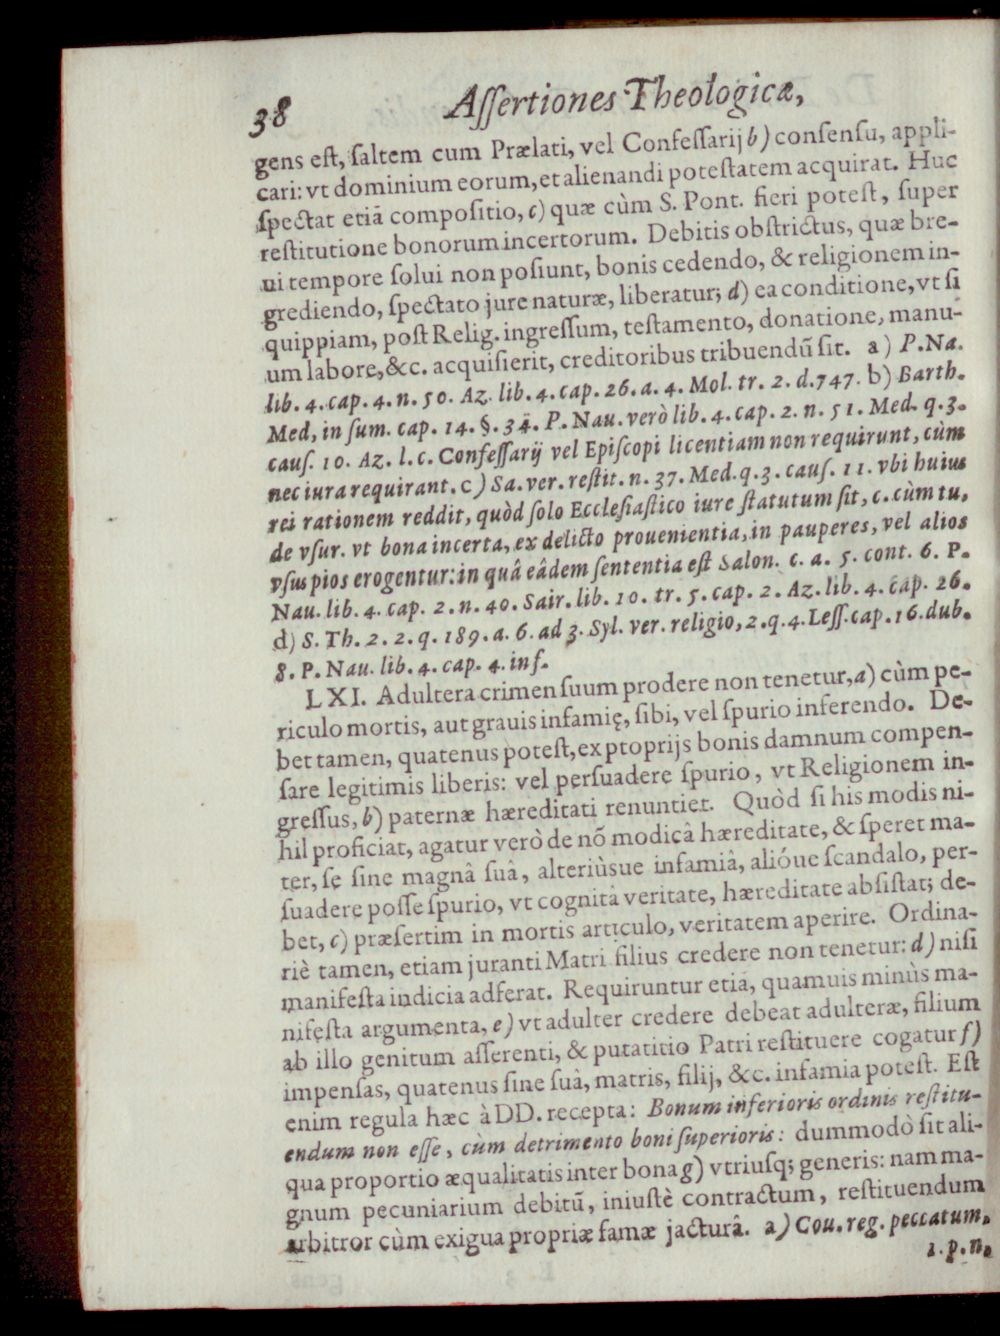 38 Aſſertiones Theologicæ,
gens eſt, ſaltem cum Prælati, vel Confeſſarij b) conſenſu, appli-
cari: vt dominium eorum, et alienandi poteſtatem acquirat. Huc
ſpectat etiã compoſitio, c) quæ cùm S. Pont. fieri poteſt, ſuper
reſtitutione bonorum incertorum. Debitis obſtrictus, quæ bre-
ui tempore ſolui non poſiunt, bonis cedendo, & religionem in-
grediendo, ſpectato jure naturæ, liberatur; d) ea conditione, vt ſi
quippiam, poſt Relig. ingreſſum, teſtamento, donatione, manu-
um labore, &c. acquiſierit, creditoribus tribuendũ ſit. a) P. Na.
lib. 4. cap. 4. n. 50. Az. lib. 4. cap. 26. a. 4. Mol. tr. 2. d. 747. b) Barth.
Med, in ſum. cap. 14. §. 34. P. Nau. verò lib. 4. cap. 2. n. 51. Med. q. 3.
cauſ. 10. Az. l. c. Confeſſarij vel Epiſcopi licentiam non requirunt, cùm
nec iura requirant. c) Sa. ver. reſtit. n. 37. Med. q. 3. cauſ. 11. vbi huius
rei rationem reddit, quòd ſolo Eccleſiaſtico iure ſtatutum ſit, c. cùm tu,
de vſur. vt bona incerta, ex delicto prouenientia, in pauperes, vel alios
vſus pios erogentur: in quâ eâdem ſententia eſt Salon. c. a. 5. cont. 6. P.
Nau. lib. 4. cap. 2. n. 40. Sair. lib. 10. tr. 5. cap. 2. Az. lib. 4. cap. 26.
d) S. Th. 2. 2. q. 189. a. 6. ad 3. Syl. ver. religio, 2. q. 4. Leſſ. cap. 16. dub.
8. P. Nau. lib. 4. cap. 4. inf.
LXI. Adultera crimen ſuum prodere non tenetur, a) cùm pe-
riculo mortis, aut grauis infamię, ſibi, vel ſpurio inferendo. De-
bet tamen, quatenus poteſt, ex ptoprijs bonis damnum compen-
ſare legitimis liberis: vel perſuadere ſpurio, vt Religionem in-
greſſus, b) paternæ hæreditati renuntiet. Quòd ſi his modis ni-
hil proficiat, agatur verò de nõ modicâ hæreditate, & ſperet ma-
ter, ſe ſine magnâ ſuâ, alteriùsue infamiâ, alióue ſcandalo, per-
ſuadere poſſe ſpurio, vt cognitâ veritate, hæreditate abſiſtat; de-
bet, c) præſertim in mortis articulo, veritatem aperire. Ordina-
riè tamen, etiam juranti Matri filius credere non tenetur: d) niſi
manifeſta indicia adferat. Requiruntur etiã, quamuis minùs ma-
nifeſta argumenta, e) vt adulter credere debeat adulteræ, filium
ab illo genitum aſſerenti, & putatitio Patri reſtituere cogatur f)
impenſas, quatenus ſine ſuâ, matris, filij, &c. infamia poteſt. Eſt
enim regula hæc à DD. recepta: Bonum inferioris ordinis reſtitu-
endum non eſſe, cùm detrimento boni ſuperioris: dummodò ſit ali-
qua proportio æqualitatis inter bona g) vtriuſq; generis: nam ma-
gnum pecuniarium debitũ, iniuſtè contractum, reſtituendum
arbitror cùm exigua propriæ famæ jacturâ. a) Cou. reg. peccatum.
1. p. n.